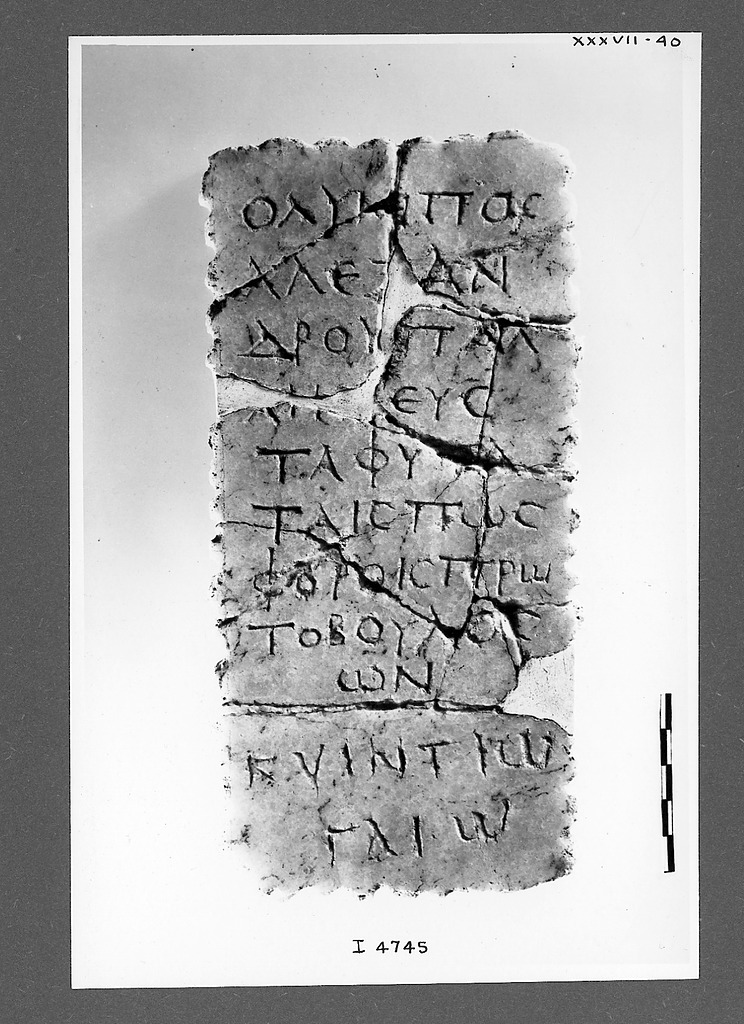 XXXVII - 40
ΟΛΥΜΠΑϹ
ΑΛΕΞΑΝ
ΔΡΟΥΠΑΛ
ΛΗΝΕΥϹ
ΤΑΦΥΤΑ
ΤΑΙϹΠΩϹ
ΦΟΡΟΙϹΠΡΩ
ΤΟΒΟΥΛΟϹ
ΩΝ
ΚΥΙΝΤΙΩ
ΓΑΙΩ
I 4745